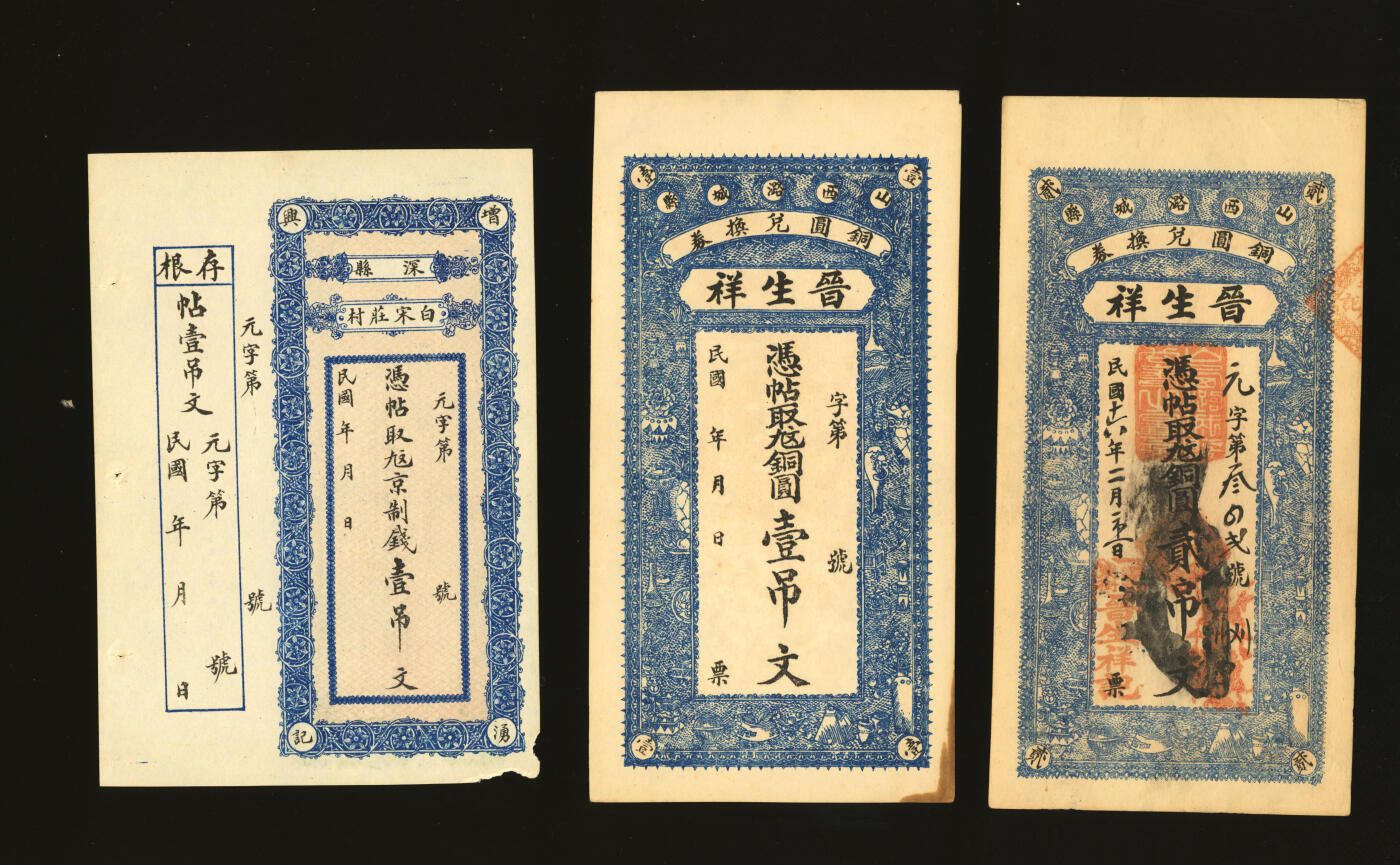 存根
帖壹吊文
元字第 號
民國 年 月 日
元字第 號
增興湧記
深縣
白宋莊村
元字第 號
憑帖取九京制錢壹吊文
民國 年 月 日
壹 壹
山西潞城縣
銅圓兌換券
晉生祥
字第 號
憑帖取九銅圓壹吊文
民國 年 月 日 票
壹 壹
貳 貳
山西潞城縣
銅圓兌換券
晉生祥
元字第叁 號
憑帖取九銅圓貳吊文
民國十六年二月 日 票
貳 貳